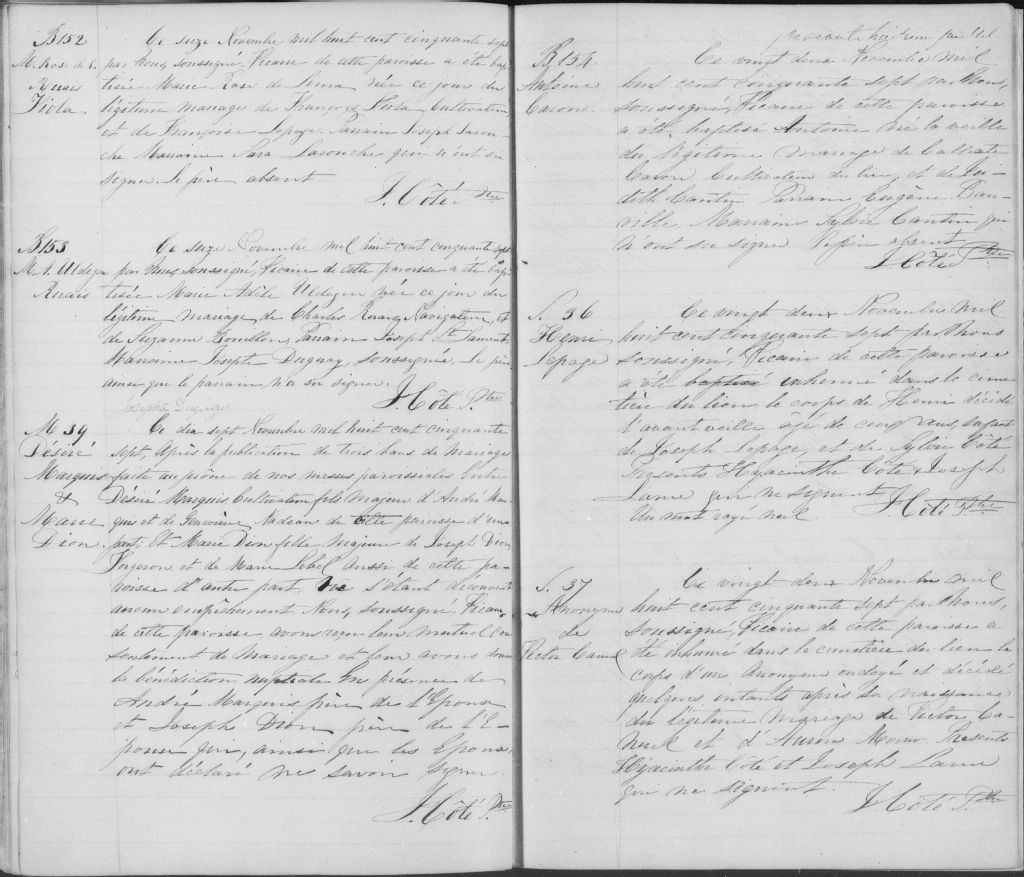 B152
M. Rose de L.
Ruais
Viola
Ce seize Novembre mil huit cent cinquante sept
par nous, soussigné, Vicaire de cette paroisse a été bap
tisée Marie Rose de Lima née ce jour du
légitime mariage de François Viola Cultivateur
et de Françoise Lepage. Parrain Joseph Larou-
che Marraine Sara Larouche qui n'ont su
signer. le père absent
J. Côté Ptre
B153
M. A. Uldegen
Ruais
Ce seize Novembre mil huit cent cinquante sept
par nous, soussigné, Vicaire de cette paroisse a été bap
tisée Marie Adèle Uldegen née ce jour du
légitime mariage de Charles Ruais, Navigateur, et
de Suzanne Bouillon. Parrain Joseph St Laurent
Marraine Josephte Duguay, soussignée. le père
ainsi que le parrain n'a su signer.
J. Côté Ptre
Josephte Duguay
M 39
Désiré
Marquis
&
Marie
Dion.
Ce dix sept Novembre mil huit cent cinquante
sept, Après la publication de trois bans de mariage
faite au prône de nos messes paroissiales Entre
Désiré Marquis Cultivateur fils majeur d'André Mar
quis et de Geneviève Nadeau de cette paroisse d'une
part, Et Marie Dion fille majeure de Joseph Dion
Forgeron et de Marie Lebel aussi de cette pa-
roisse d'autre part, ne s'étant découvert
aucun empêchement Nous, soussigné, Vicaire
de cette paroisse, avons reçu leur mutuel con
sentement de mariage et leur avons donné
la bénédiction nuptiale En présence de
André Marquis père de l'Epoux
et Joseph Dion père de l'E-
pouse qui, ainsi que les Epoux,
ont déclaré ne savoir signer.
J. Côté Ptre
B 154
Antoine
Caron.
Ce vingt deux Novembre mil
huit cent cinquante sept par Nous,
soussigné, Vicaire de cette paroisse
a été baptisé Antoine né la veille
du légitime mariage de
Caron Cultivateur du lieu, et de Ju-
dith Cantin Parrain Eugène Ban-
ville, Marraine Sylvie Cantin qui
n'ont su signer le père absent
J. Côté Ptre
S. 36
Henri
Lepage
Ce vingt deux Novembre mil
huit cent cinquante sept par Nous
soussigné, Vicaire de cette paroisse
a été baptisé inhumé dans le cime
tière du lieu le corps de Henri décédé
l'avant veille âgé de cinq ans, enfant
de Joseph Lepage, et de Sylvie Côté
Présents Hyacinthe Côté & Joseph
Lavoie qui ne signent
Un mot rayé nul.
J. Côté Ptre
S. 37
Anonyme
de
Victor Canuel
Ce vingt deux Novembre mil
huit cent cinquante sept par Nous,
soussigné, Vicaire de cette paroisse a
été inhumé dans le cimetière du lieu le
corps d'un Anonyme ondoyé et décédé
quelques instants après sa naissance
du légitime mariage de Victor Ca-
nuel et d'Aurore Présents
Hyacinthe Côté et Joseph Lavoie
qui ne signent.
J. Côté Ptre